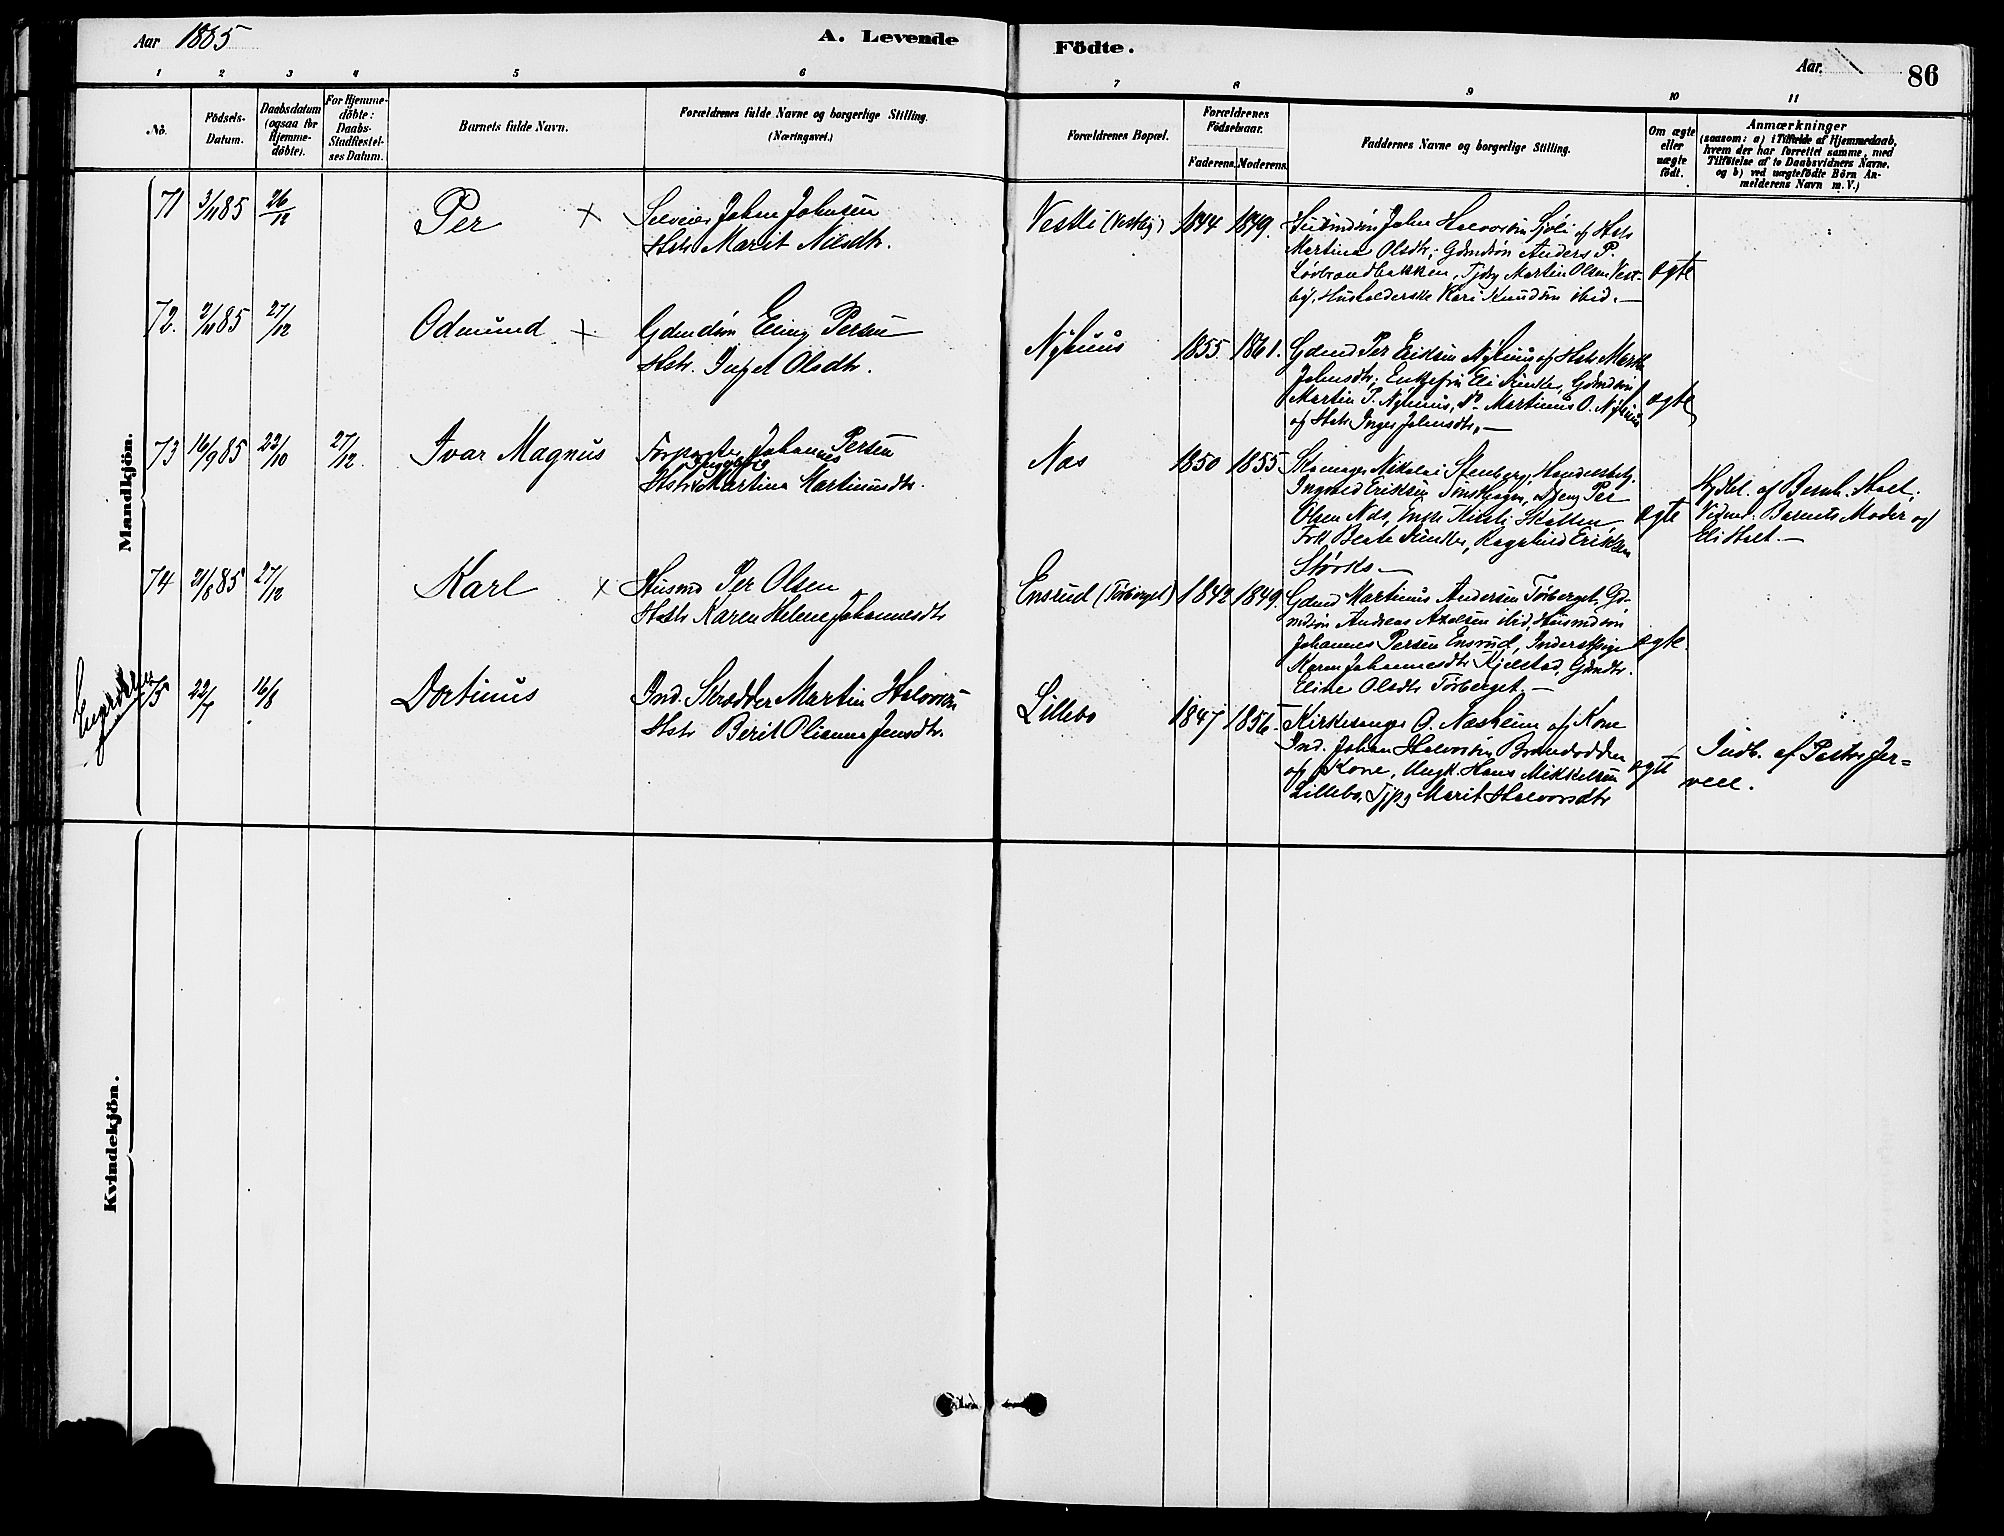 Aar 1885
A. Levende
Födte.
Aar
86
1 2 3 4 5 6 7 8 9 10 11
No.
Födsels-
Datum.
Daabsdatum
(ogsaa for
Hjemme-
döbte).
For Hjemme-
döbte:
Daabs-
Stadfæstel-
ses Datum.
Barnets fulde Navn.
Forældrenes fulde Navne og borgerlige Stilling.
(Næringsvei.)
Forældrenes Bopæl.
Forældrenes
Födselsaar.
Faderens. Moderens.
Faddernes Navne og borgerlige Stilling.
Om ægte
eller
uægte
födt.
Anmærkninger
(saasom: a) i Tilfælde af Hjemmedaab,
hvem der har forrettet samme, med
Tilföielse af to Daabsvidners Navne,
og b) ved uægtefödte Börn An-
melderens Navn m. V.)
Mandkjön.
71 3/11 85 26/12 Per x Selveier Johan Johnsen
Hstr Marit Nilsdtr.
Vestli (Vestby) 1844 1849.
Johan Halvorsen Sjöli og Hstr
Martina Olsdtr, Gdmdsön Anders P.
Lövbrændbakken, Tjdrg Martin Olsen Vest-
by, Husholderske Kari Knudsen ibid.—
ægte
72. 2/11 85 27/12 Odmund x Gdmdsön Eling Persen
Hstr. Olsdtr.
Nyhuus 1855. 1861.
Gdmd Per Eriksen Nyhuus og Hstr Marte
Johnsdtr; Enkefru Eli Gdmdsön
Martin P. Nyhuus, Do Martinus O. Nyhuus
og Hstr Inger Johnsdtr.—
ægte
73 16/9 85 22/10 27/12. Ivar Magnus Forpagter Johannes Persen
Hstr Martina Martinusdtr.
Næs 1850 1855
Skomager Nikolai Stenberg, Handelsbetj.
Ingvald Eriksen Tönskagen, Per
Olsen Næs, Enke Kirsti
Frk Beate Ragnhild Eriksen
Störks—
ægte
Hjdbt. af Bernh. Holt;
Vidner: Barnets Moder og
Eli Holt.—
74 21/8 85 27/12 Karl x Husmd Per Olsen
Hstr Karen Helene Johannesdtr
Ensrud (Törberget) 1842 1849.
Gdmd Martinus Andersen Törberget, Gd-
mdsön Andreas Axelsen ibid, Husmdsön
Johannes Persen Ensrud, Inderstpige
Karen Johannesdtr Kjelstad, Gdmdtr.
Eline Olsdtr Törberget.—
ægte.
75 22/7 16/8 Dortinus Ind. Skrædder Martin Halvorsen
Hstr Berit Olianna Jensdtr.
Lillebo 1847 1856.
Kirkesanger O. Næsheim og Kone
Ind. Johan Halvorsen Brændodden
og Kone, Ungk. Hans Mikkelsen
Lillebo, Tjpg Marit Halvorsdtr
ægte
Indb. af Pastor Jer=
vell.
Kvindekjön.